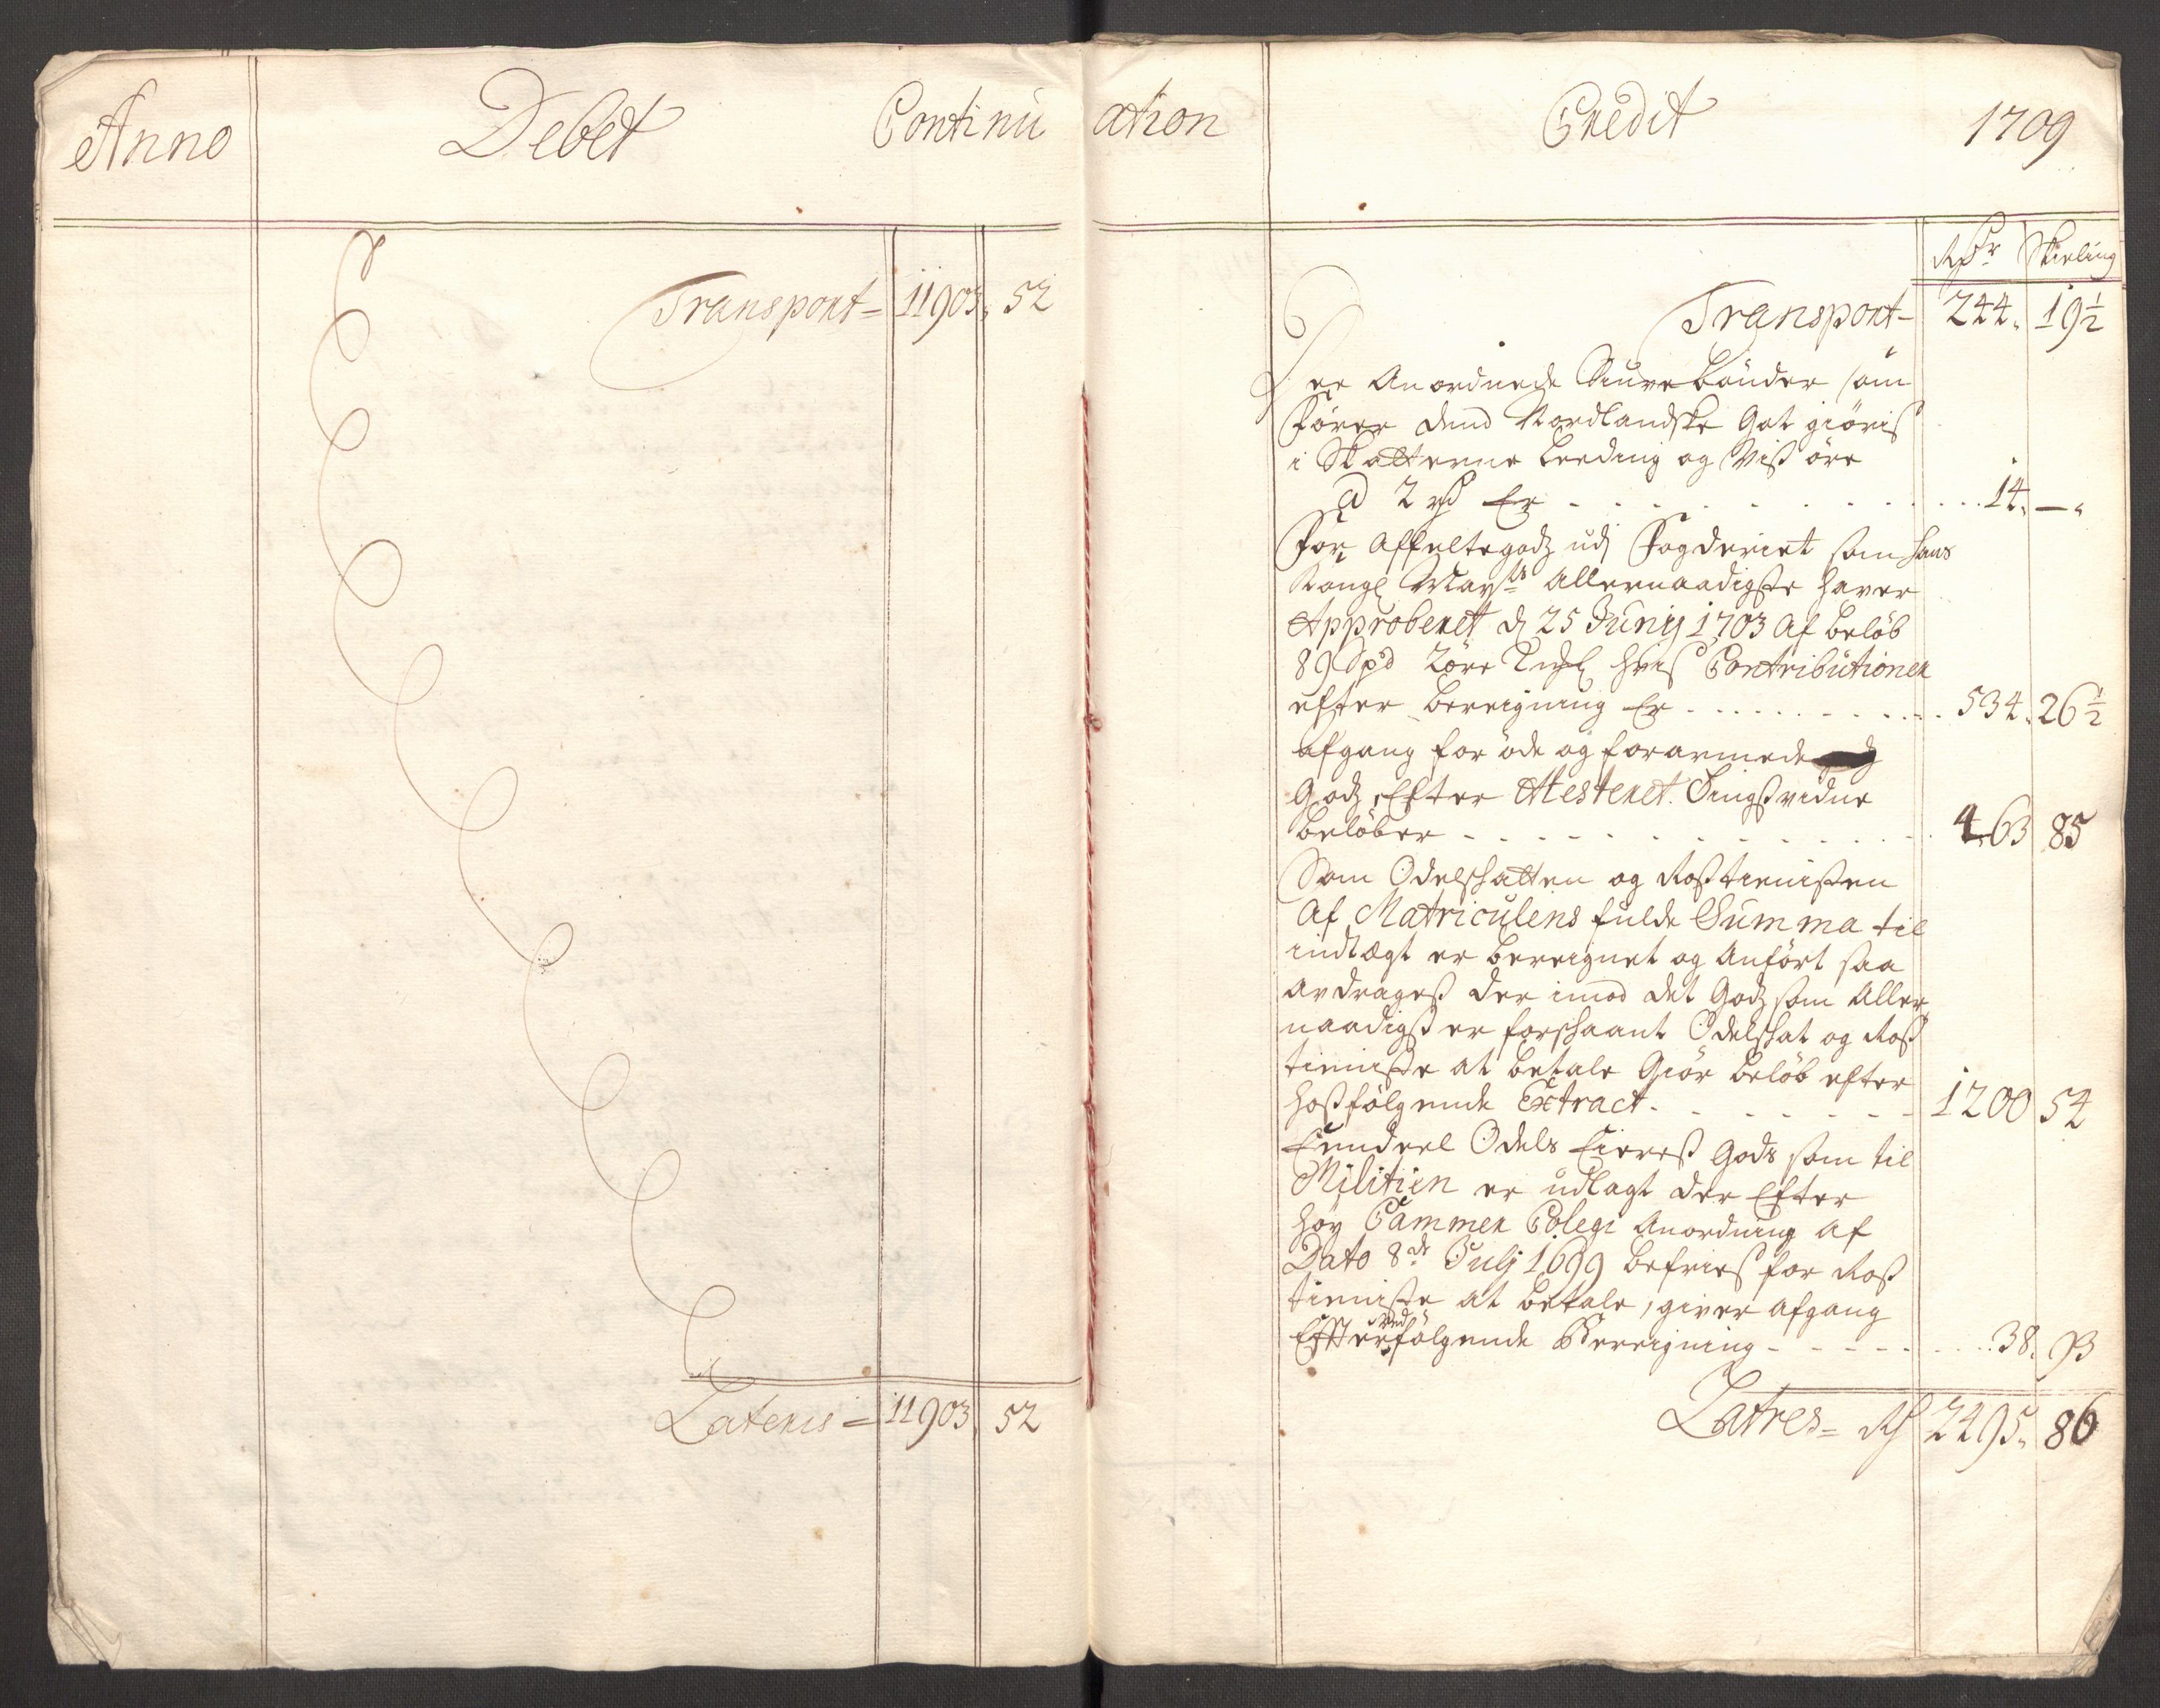 Anno Debet Continu
Transport = 11903. 52
Lateris = 11903. 52
ation Credit 1709
Rdr Skieling
Transport - 244. 19½
De Anordnede Skurebönder som
Förer dend Nordlandske Got giöris
i Skatterne Leeding og Viß öre
a 2 rd Er 14. —
For Affeltegodz udj Fogderiet som hans
Kongl Mayts Allernaadigste haver
Approberet d 25 Junij 1703 Af beløb
89 Spd 2öre hvis Contributioner
efter bereigning Er 534. 26½
Afgang for öde og forarmede
Godz, Efter Attesteret Tingsvidne
beløber 463 85
Som Odelskatten og Rostienisten
Af Matriculens fulde Summa til
indtægt er bereignet og Anfört saa
Avdrages der imod det Godz som Aller
naadigst er forskaant Odelskat og Roß
tieniste at betale Giör beløb efter
hosfölgende Extract 1200 54
Eendeel Odels Eieres Gods som til
Militien er udlagt der Efter
höy Cammer Colegi Anordning Af
Dato 8de Julj 1699 befries for Roß
tieniste at betale, giver Afgang
Efter vedfölgende Bereigning 38. 93
Latres = Rd 2495. 86